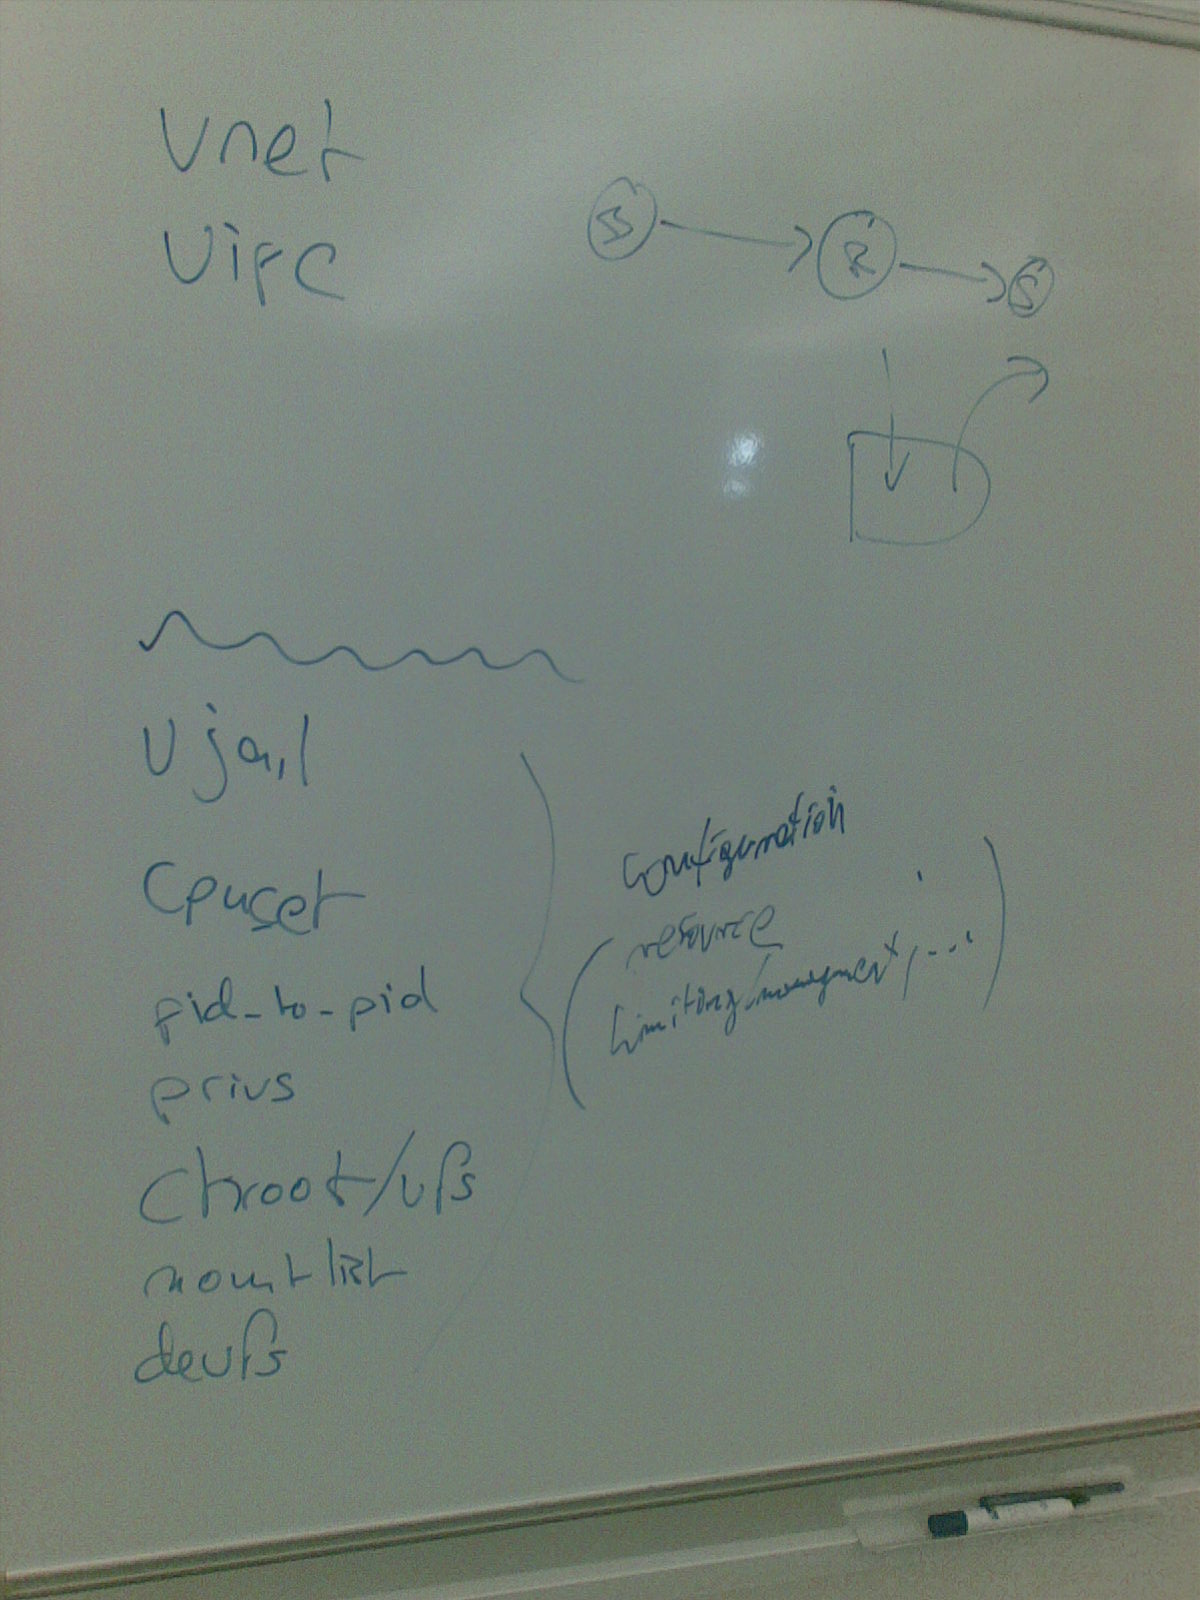 vnet
vipc
S
R
S
vjail
cpuset
pid_to_pid
privs
chroot/vfs
mount list
devfs
configuration
(resource
limiting/management, ...)